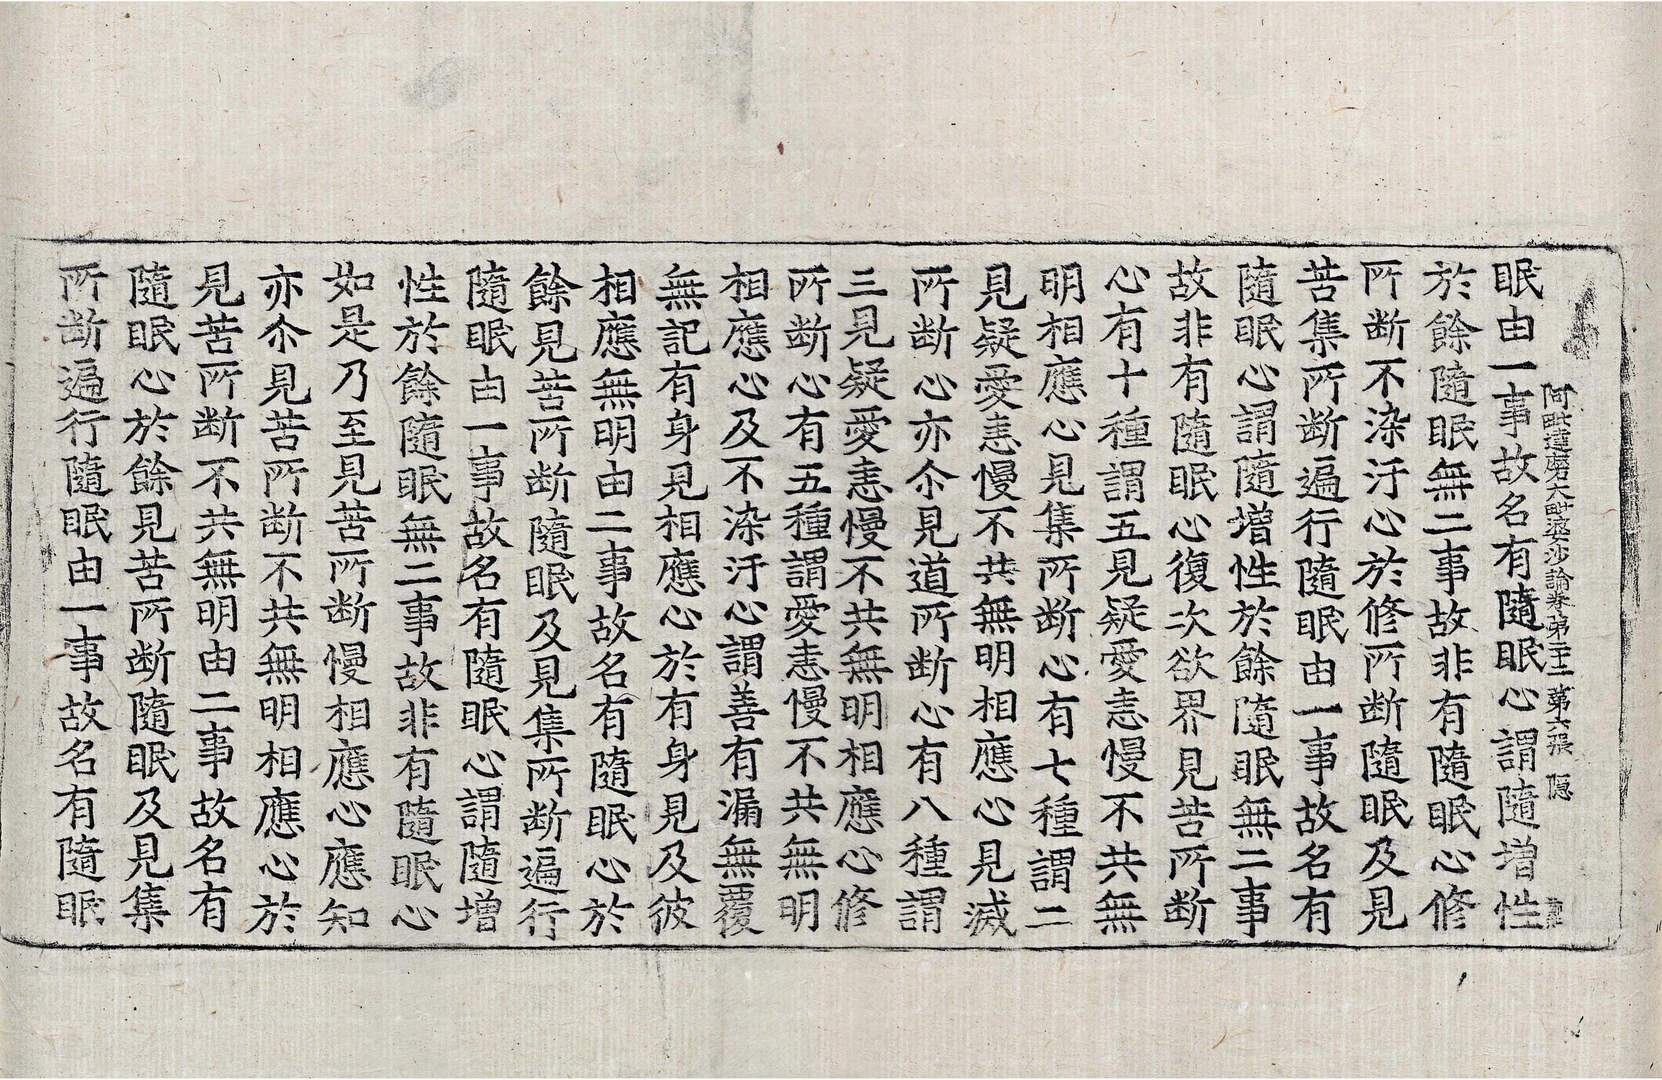 阿毗達磨大毗婆沙論卷第二十二 第六張 隱
眠由一事故名有隨眠心謂隨增性
於餘隨眠無二事故非有隨眠心修
所断不染汙心於修所断隨眠及見
苦集所断遍行隨眠由一事故名有
隨眠心謂隨增性於餘隨眠無二事
故非有隨眠心復次欲界見苦所断
心有十種謂五見疑愛恚慢不共無
明相應心見集所断心有七種謂二
見疑愛恚慢不共無明相應心見滅
所断心亦尒見道所断心有八種謂
三見疑愛恚慢不共無明相應心修
所断心有五種謂愛恚慢不共無明
相應心及不染汙心謂善有漏無覆
無記有身見相應心於有身見及彼
相應無明由二事故名有隨眠心於
餘見苦所断隨眠及見集所断遍行
隨眠由一事故名有隨眠心謂隨增
性於餘隨眠無二事故非有隨眠心
如是乃至見苦所断慢相應心應知
亦尒見苦所断不共無明相應心於
見苦所断不共無明由二事故名有
隨眠心於餘見苦所断隨眠及見集
所断遍行隨眠由一事故名有隨眠